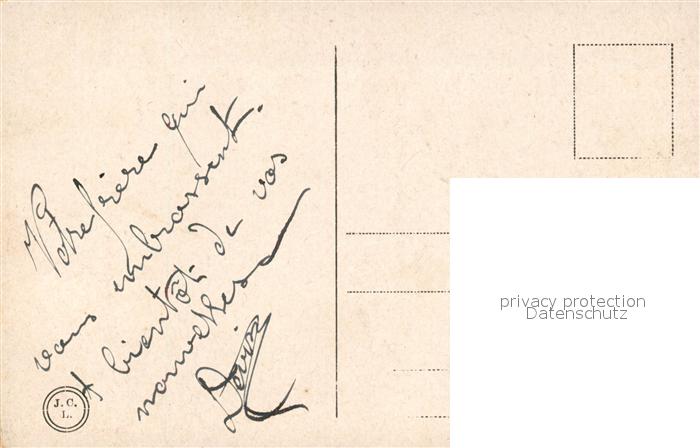 Votre frère qui
vous embrassent.
A bientôt de vos
nouvelles
J. C.
L.
privacy protection
Datenschutz